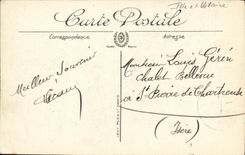 Ille et Vilaine
Carte Postale
Correspondance
Adresse
Meilleur Souvenir
Monsieur Louis Gérin
Chalet Bellevue
à St Pierre de Chartreuse
(Isère)